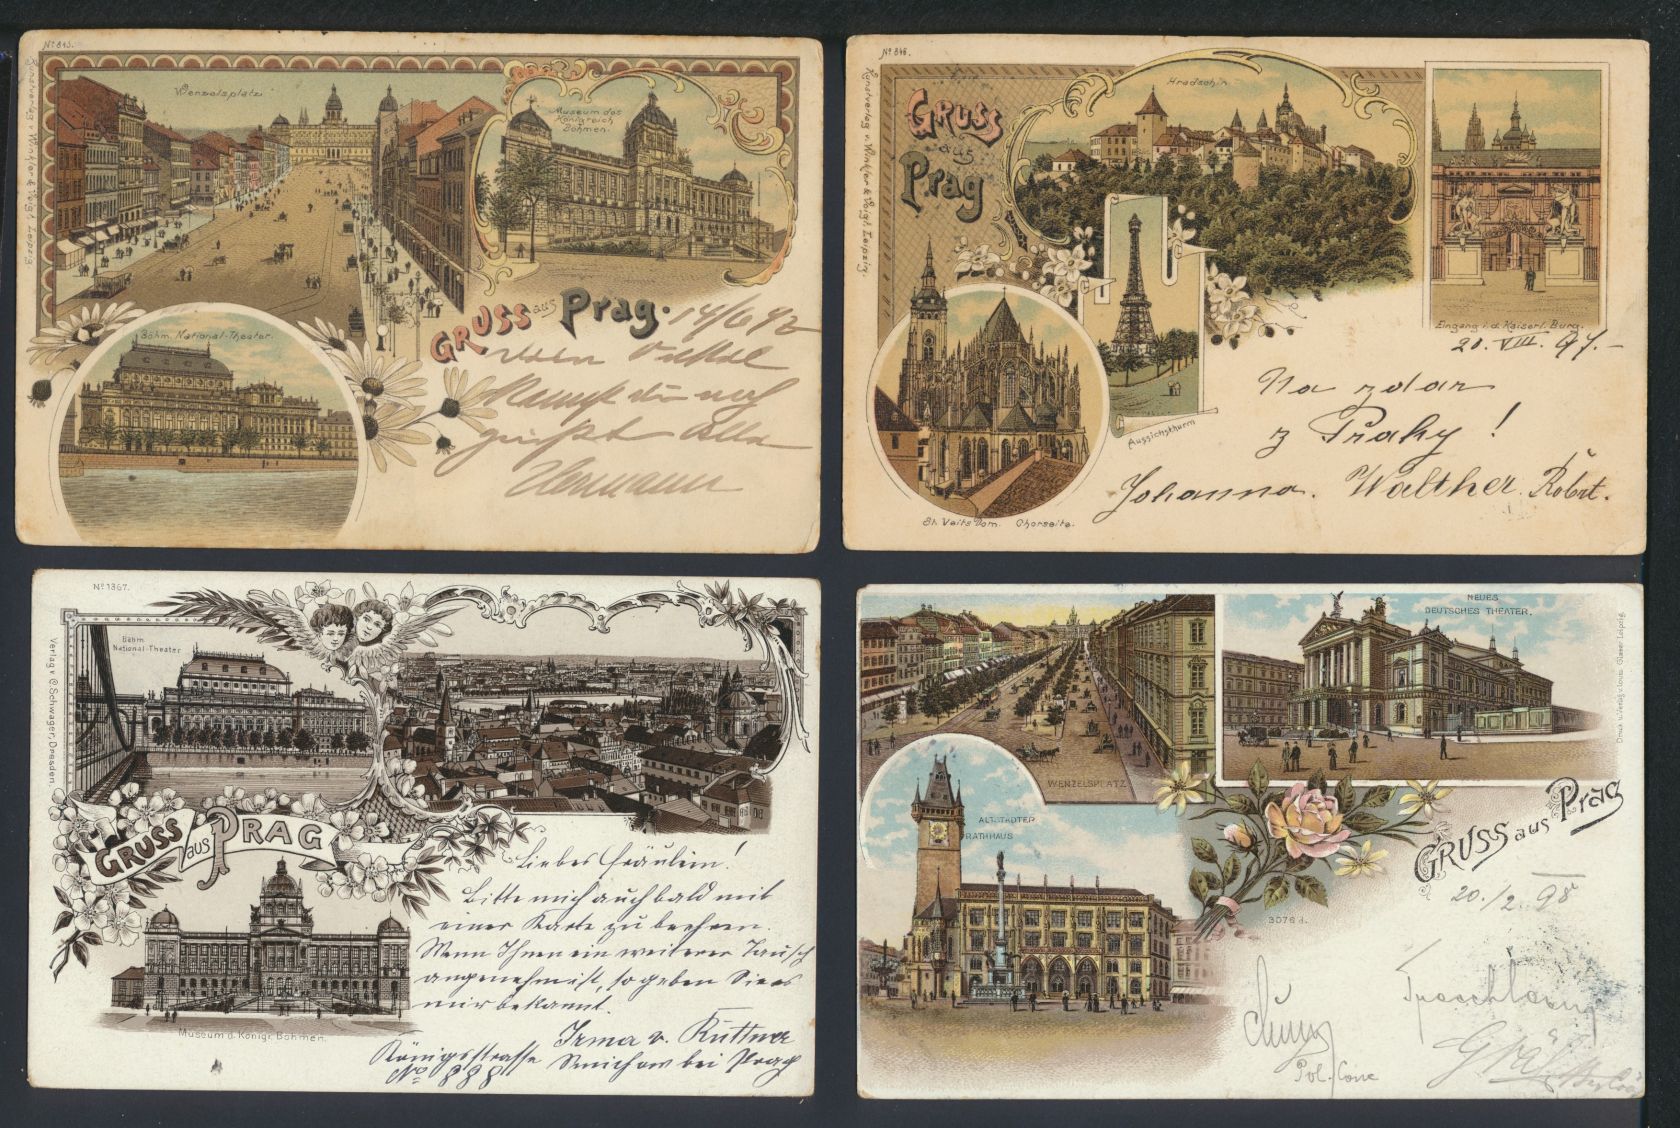 No 845.
Kunstverlag v. Winkler & Voigt, Leipzig.
Wenzelsplatz
Museum des
Königreich
Böhmen.
Böhm. National-Theater.
GRUSS aus Prag.
14/6 97
Hermann
No 846.
Kunstverlag v. Winkler & Voigt, Leipzig.
GRUSS
aus
Prag
Hradschin
Eingang i. d. Kaiserl. Burg.
Aussichtsthurm
St. Veits Dom. Chorseite.
20. VIII. 97.-
Na zdar
z Prahy!
Johanna. Walther. Robert.
No 1367.
Verlag v. C. Schwager, Dresden
Böhm.
National-Theater
GRUSS aus PRAG
Museum d. Königr. Böhmen.
Liebes Fräulein!
Bitte mich auch bald mit
einer Karte zu beehren.
Wenn Ihnen ein weiterer Tausch
angenehm ist, so geben Sie es
mir bekannt.
Irma v. Kuttner
Königsstrasse Smichow bei Prag
No 888
WENZELSPLATZ
NEUES
DEUTSCHES THEATER.
Druck u. Verlag v. Louis Glaser Leipzig
ALTSTÄDTER
RATHHAUS
GRUSS aus Prag
3076 d.
20./2. 98